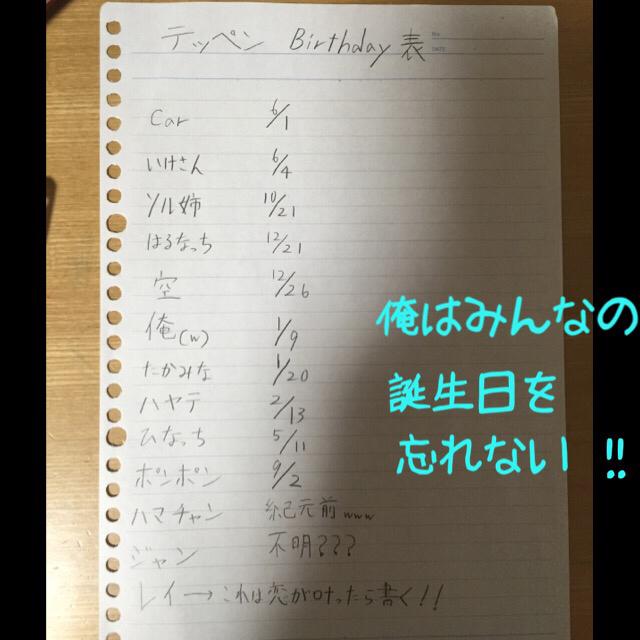 テッペン Birthday 表
No.
DATE
Car 6/1
いけさん 6/4
ソル姉 10/21
はるなっち 12/21
空 12/26
俺(w) 1/9
たかみな 1/20
ハヤテ 2/13
ひなっち 5/11
ポンポン 9/2
ハマチャン 紀元前www
ジャン 不明???
レイ→これは恋が叶ったら書く!!
俺はみんなの
誕生日を
忘れない!!